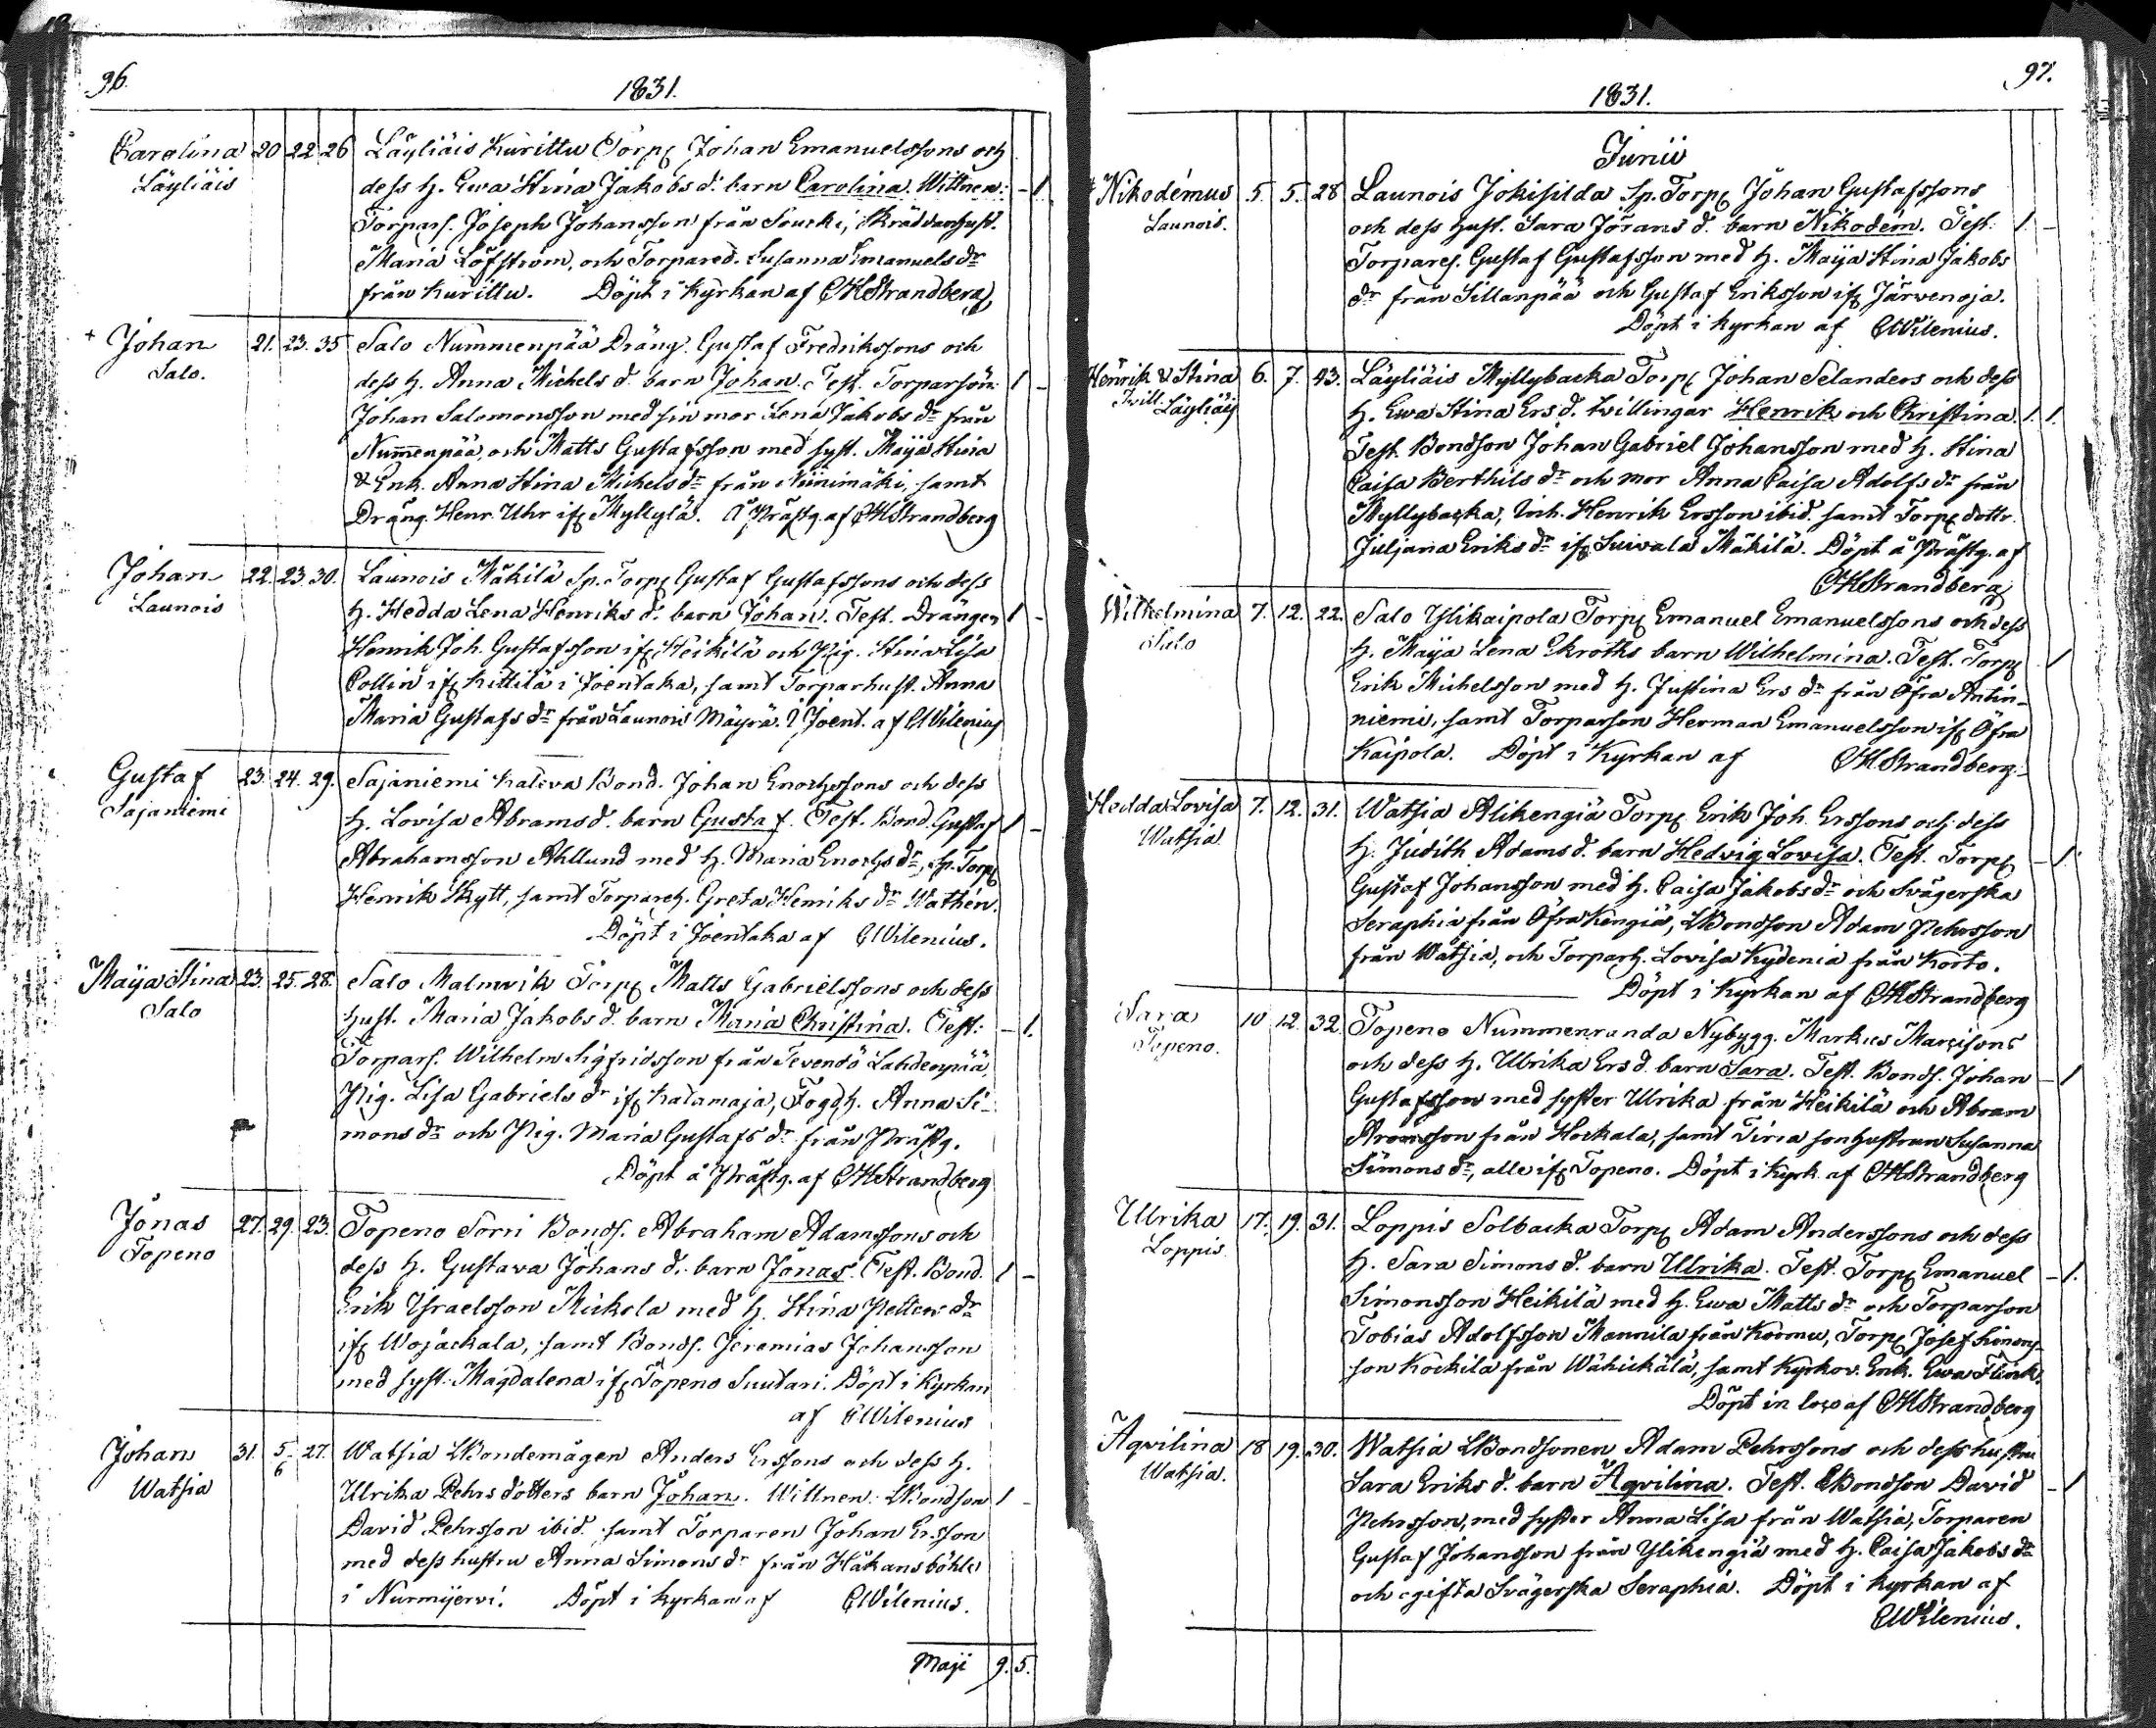 96.
1831.
Carolina 20 22 26 Läyliäis Kurittu Torp Johan Emanuelssons och
Läyliäis dess h. Ewa Stina Jakobs d. barn Carolina. Wittnen: - 1
Torpars. Joseph Johansson från Soucki, Skräddarhust.
Maria Löfström, och Torpared. Susanna Emanuels dr
från Kurittu. Döpt i Kyrkan af CHStrandberg
+ Johan 21. 23. 35 Salo Nummenpää Dräng. Gustaf Fredrikssons och
Salo. dess h. Anna Michels d. barn Johan. Test. Torparsön: 1 -
Johan Salomonsson med sin mor Lena Jakobs dr från
Nummenpää, och Matts Gustafsson med syst. Maija Stina
& Enk. Anna Stina Michels dr från Niinimäki, samt
Dräng. Henr. Uhr if Myllylä. Å Prästg. af CHStrandberg
Johan 22. 23. 30. Launois Mäkilä Sp. Torp Gustaf Gustafssons och dess
Launois h. Hedda Lena Henriks d. barn Johan. Test. Drängen 1 -
Henrik Joh. Gustafsson if Heikilä och Pig. Stina Lisa
Collin if Kittilä i Joentaka, samt Torparhust. Anna
Maria Gustafs dr från Launois Mäyrä. I Joent. af CWilenius
Gustaf 23. 24. 29. Sajaniemi Kaleva Bond. Johan Enochssons och dess
Sajaniemi h. Lovisa Abrams d. barn Gustaf. Test. Bond. Gustaf 1 -
Abrahamsson Ahllund med h. Maria Enochs dr, Sp. Torp
Henrik Skytt, samt Torpareh. Greta Henriks dr Wathén.
Döpt i Joentaka af CWilenius.
Maija Stina 23. 25. 28. Salo Malmvik Torp Matts Gabrielssons och dess
Salo hust. Maria Jakobs d. barn Maria Christina. Test: - 1.
Torpars. Wilhelm Sigfridsson från Tevendö Lahdenpää,
Pig. Lisa Gabriels dr if Kalamaja, Fogdh. Anna Si-
mons dr och Pig. Maria Gustafs dr från Prästg.
Döpt å Prästg. af CHStrandberg
Jonas 27. 29. 23. Topeno Sorri Bonds. Abraham Adamssons och
Topeno dess h. Gustava Johans d. barn Jonas. Test. Bond. 1 -
Erik Ysraelsson Mickola med h. Stina Petters dr
if Wojackala, samt Bonds. Jeremias Johansson
med syst. Magdalena if Topeno Suutari. Döpt i Kyrkan
af CWilenius
Johan 31. 5/6 27. Watsia LBondemågen Anders Erssons och dess h.
Watsia Ulrika Pehrs dotters barn Johan. Wittnen: LBondson 1 -
David Pehrsson ibid. samt Torparen Johan Ersson
med dess hustru Anna Simons dr från Håkansböhle
i Nurmijervi. Döpt i Kyrkan af CWilenius.
Maji 9. 5.
97.
1831.
Junii
+ Nikodémus 5. 5. 28 Launois Jokisilda Sp. Torp Johan Gustafssons
Launois. och dess hust. Sara Jörans d. barn Nikodém. Test: 1. -
Torpares. Gustaf Gustafsson med h. Maija Stina Jakobs
dr från Sillanpää och Gustaf Eriksson if Järvenoja.
Döpt i Kyrkan af CWilenius.
Henrik & Stina 6. 7. 43. Läyliäis Myllybacka Torp Johan Selanders och dess
Twill. Läyliäis h. Ewa Stina Ers d. twillingar Henrik och Christina. 1. 1.
Test. Bondson Johan Gabriel Johansson med h. Stina
Caisa Berthils dr och mor Anna Caisa Adolfs dr från
Myllybacka, Inh. Henrik Ersson ibid. samt Torp dottr.
Juljana Eriks dr if Suivala Mäkilä. Döpt å Prästg. af
CHStrandberg
Wilhelmina 7. 12. 22. Salo Ylikaipola Torp Emanuel Emanuelssons och dess
Salo h. Maija Lena Ekroths barn Wilhelmina. Test. Torp - 1
Erik Michelsson med h. Justina Ers dr från Öfra Antin-
niemi, samt Torparson Herman Emanuelsson if Öfra
Kaipola. Döpt i Kyrkan af CHStrandberg.
Hedda Lovisa 7. 12. 31. Watsia Alikengiä Torp Erik Joh. Erssons och dess
Watsia h. Judith Adams d. barn Hedvig Lovisa. Test. Torp - 1.
Gustaf Johansson med h. Caisa Jakobs dr och Svägerska
Seraphia från Öfra Kengiä, LBondson Adam Pehrsson
från Watsia, och Torparh. Lovisa Kydenia från Korto.
Döpt i Kyrkan af CHStrandberg
Sara 10 12. 32. Topeno Nummenranda Nybygg. Markus Marcisons
Topeno. och dess h. Ulrika Ers d. barn Sara. Test. Bonds. Johan - 1
Gustafsson med syster Ulrika från Heikilä och Abram
Aronsson från Hockala, samt Tiria sonhustrun Susanna
Simons dr, alle if Topeno. Döpt i Kyrk. af CHStrandberg
Ulrika 17. 19. 31. Loppis Solbacka Torp Adam Anderssons och dess
Loppis. h. Sara Simons d. barn Ulrika. Test. Torp Emanuel - 1.
Simonsson Heikilä med h. Ewa Matts dr och Torparson
Tobias Adolfsson Mannila från Kormu, Torp Josef Simons-
son Kockila från Wähickälä, samt Kyrkov. Enk. Ewa Flink.
Döpt in loco af CHStrandberg
Aqvilina 18 19. 30. Watsia LBondsonen Adam Pehrssons och dess hustru
Watsia. Sara Eriks d. barn Aqvilina. Test. LBondson David - 1
Pehrsson, med syster Anna Lisa från Watsia, Torparen
Gustaf Johansson från Ylikengiä med h. Caisa Jakobs dr
och ogifta Svägerska Seraphia. Döpt i Kyrkan af
CWilenius.